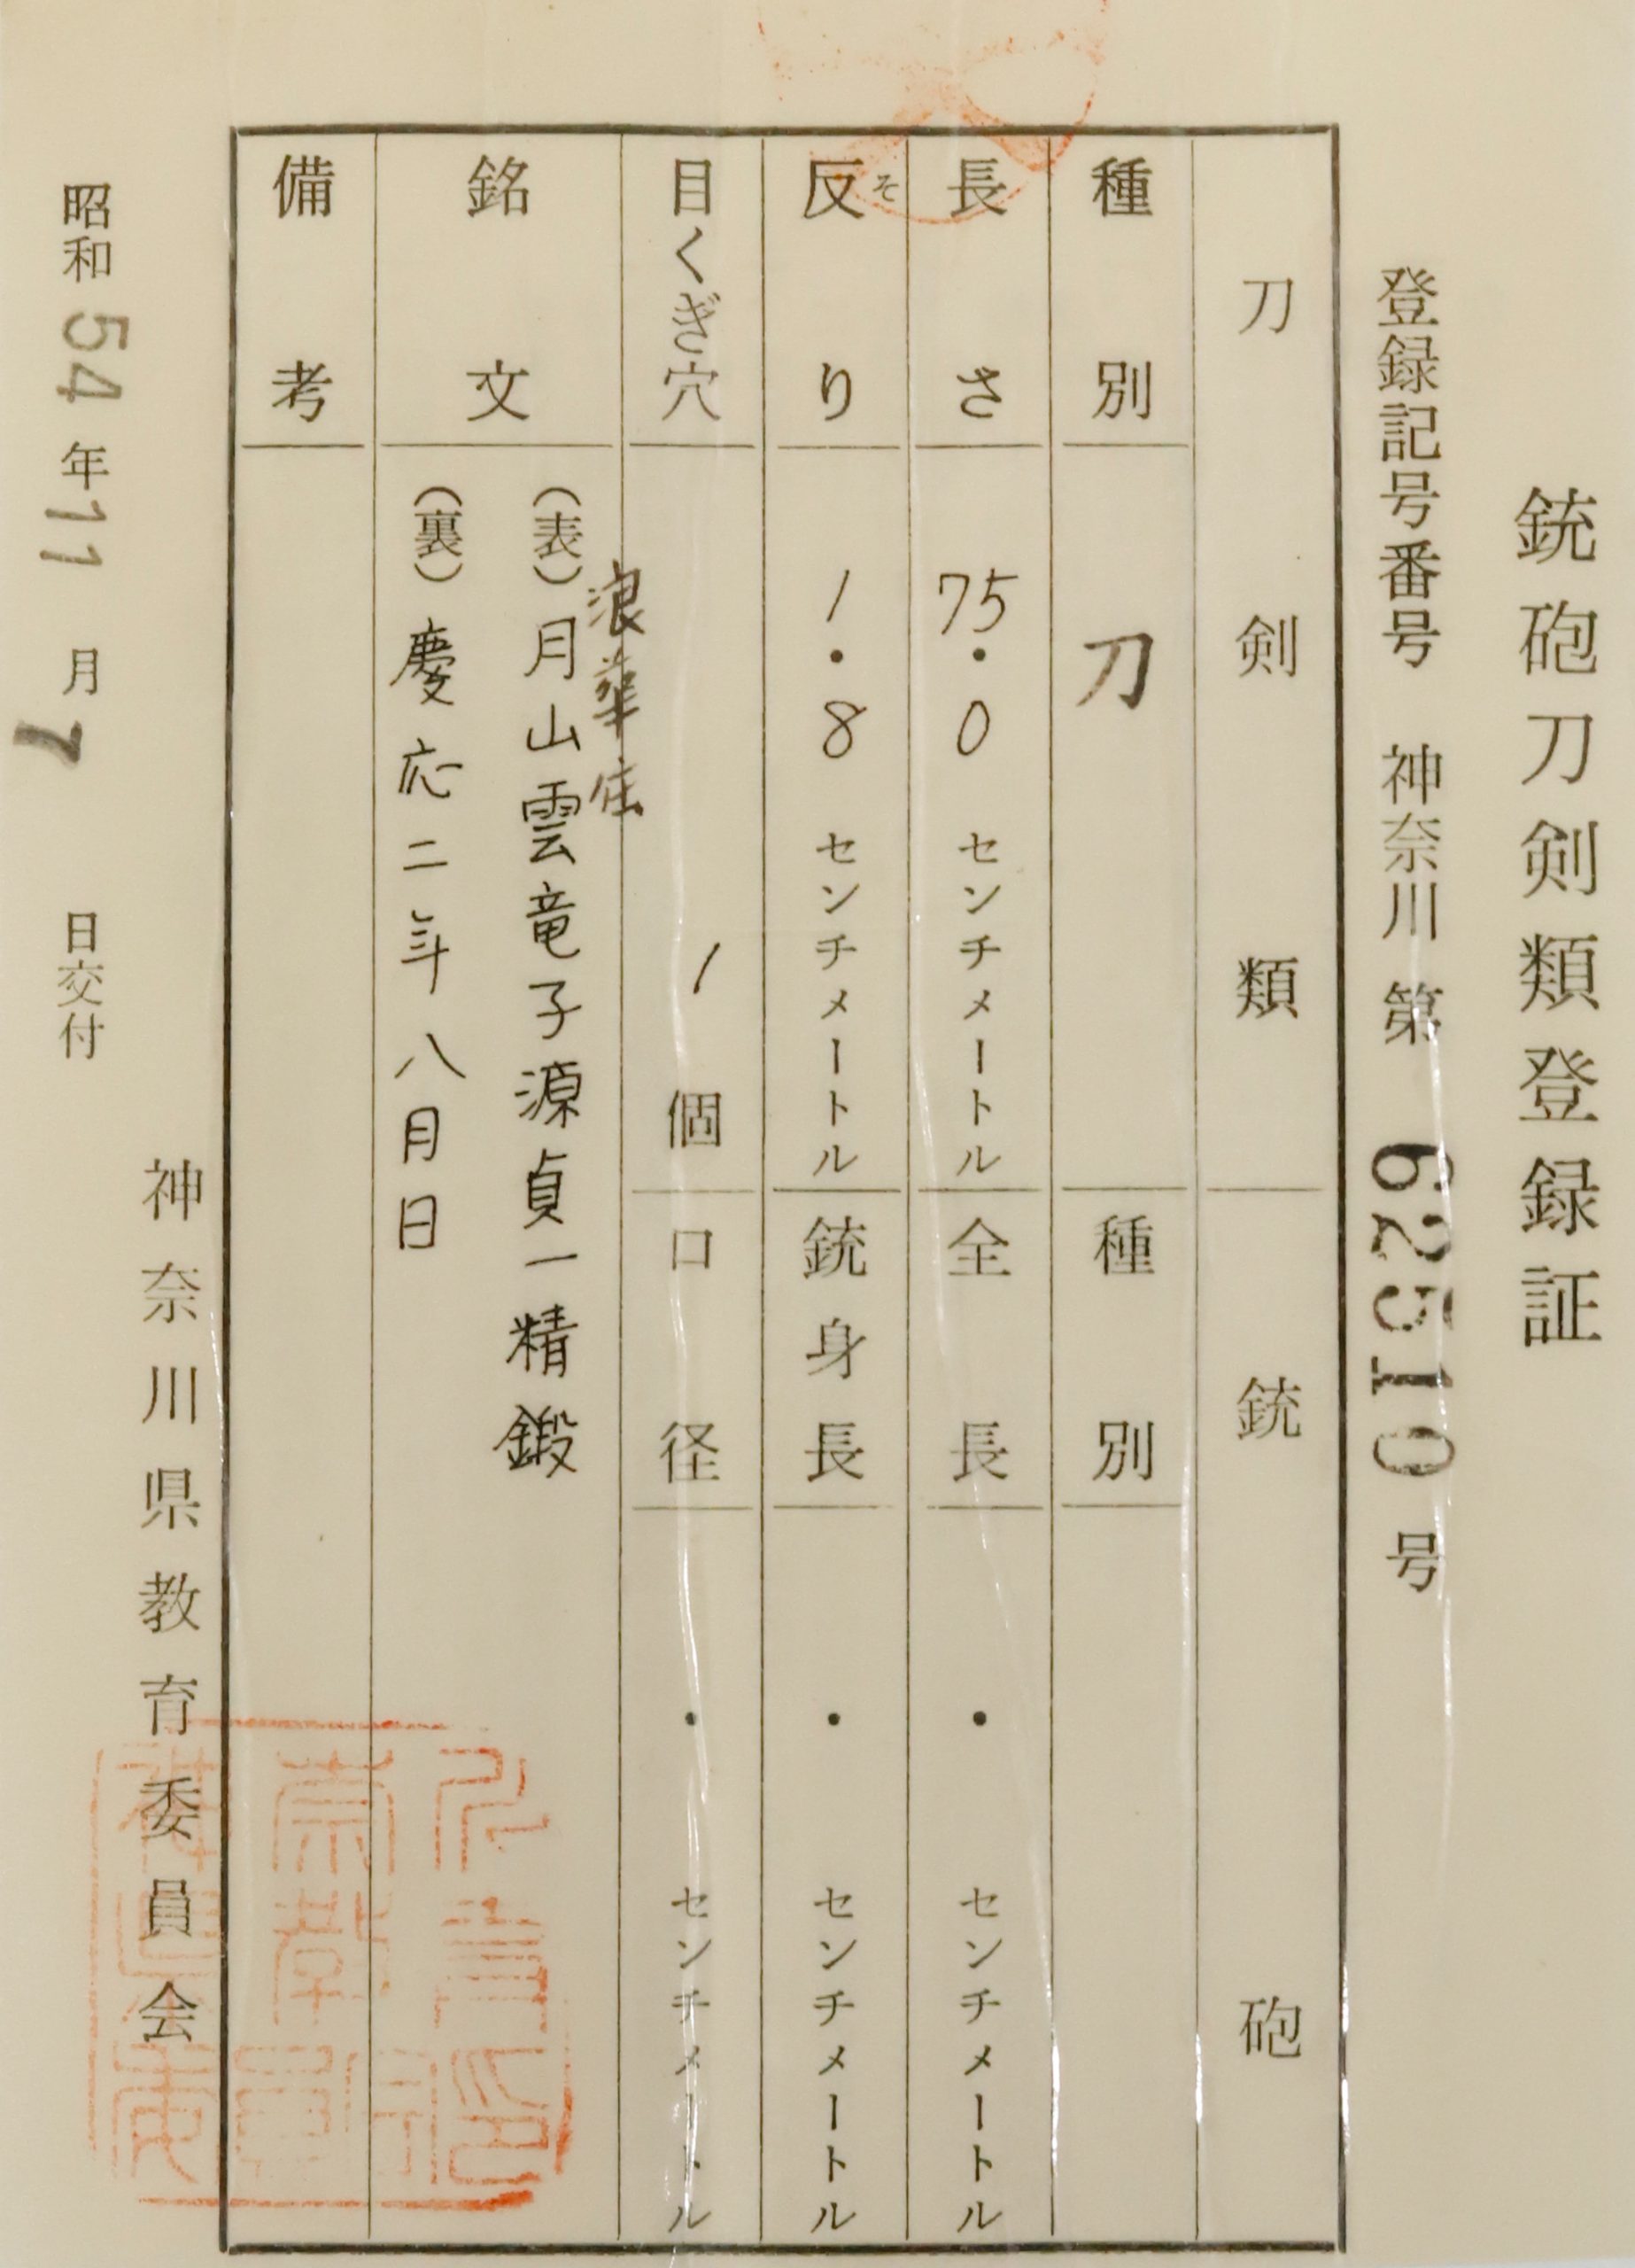 銃砲刀剣類登録証
登録記号番号 神奈川 第 62510 号
刀剣類
銃砲
種別 刀
種別
長さ 75・0 センチメートル
全長 ・ センチメートル
反り 1・8 センチメートル
そ
銃身長 ・ センチメートル
目くぎ穴 1 個
口径 ・ センチメートル
銘文
浪華住
(表)月山雲竜子源貞一精鍛
(裏)慶応二年八月日
備考
昭和 54 年 11 月 7 日交付
神奈川県教育委員会